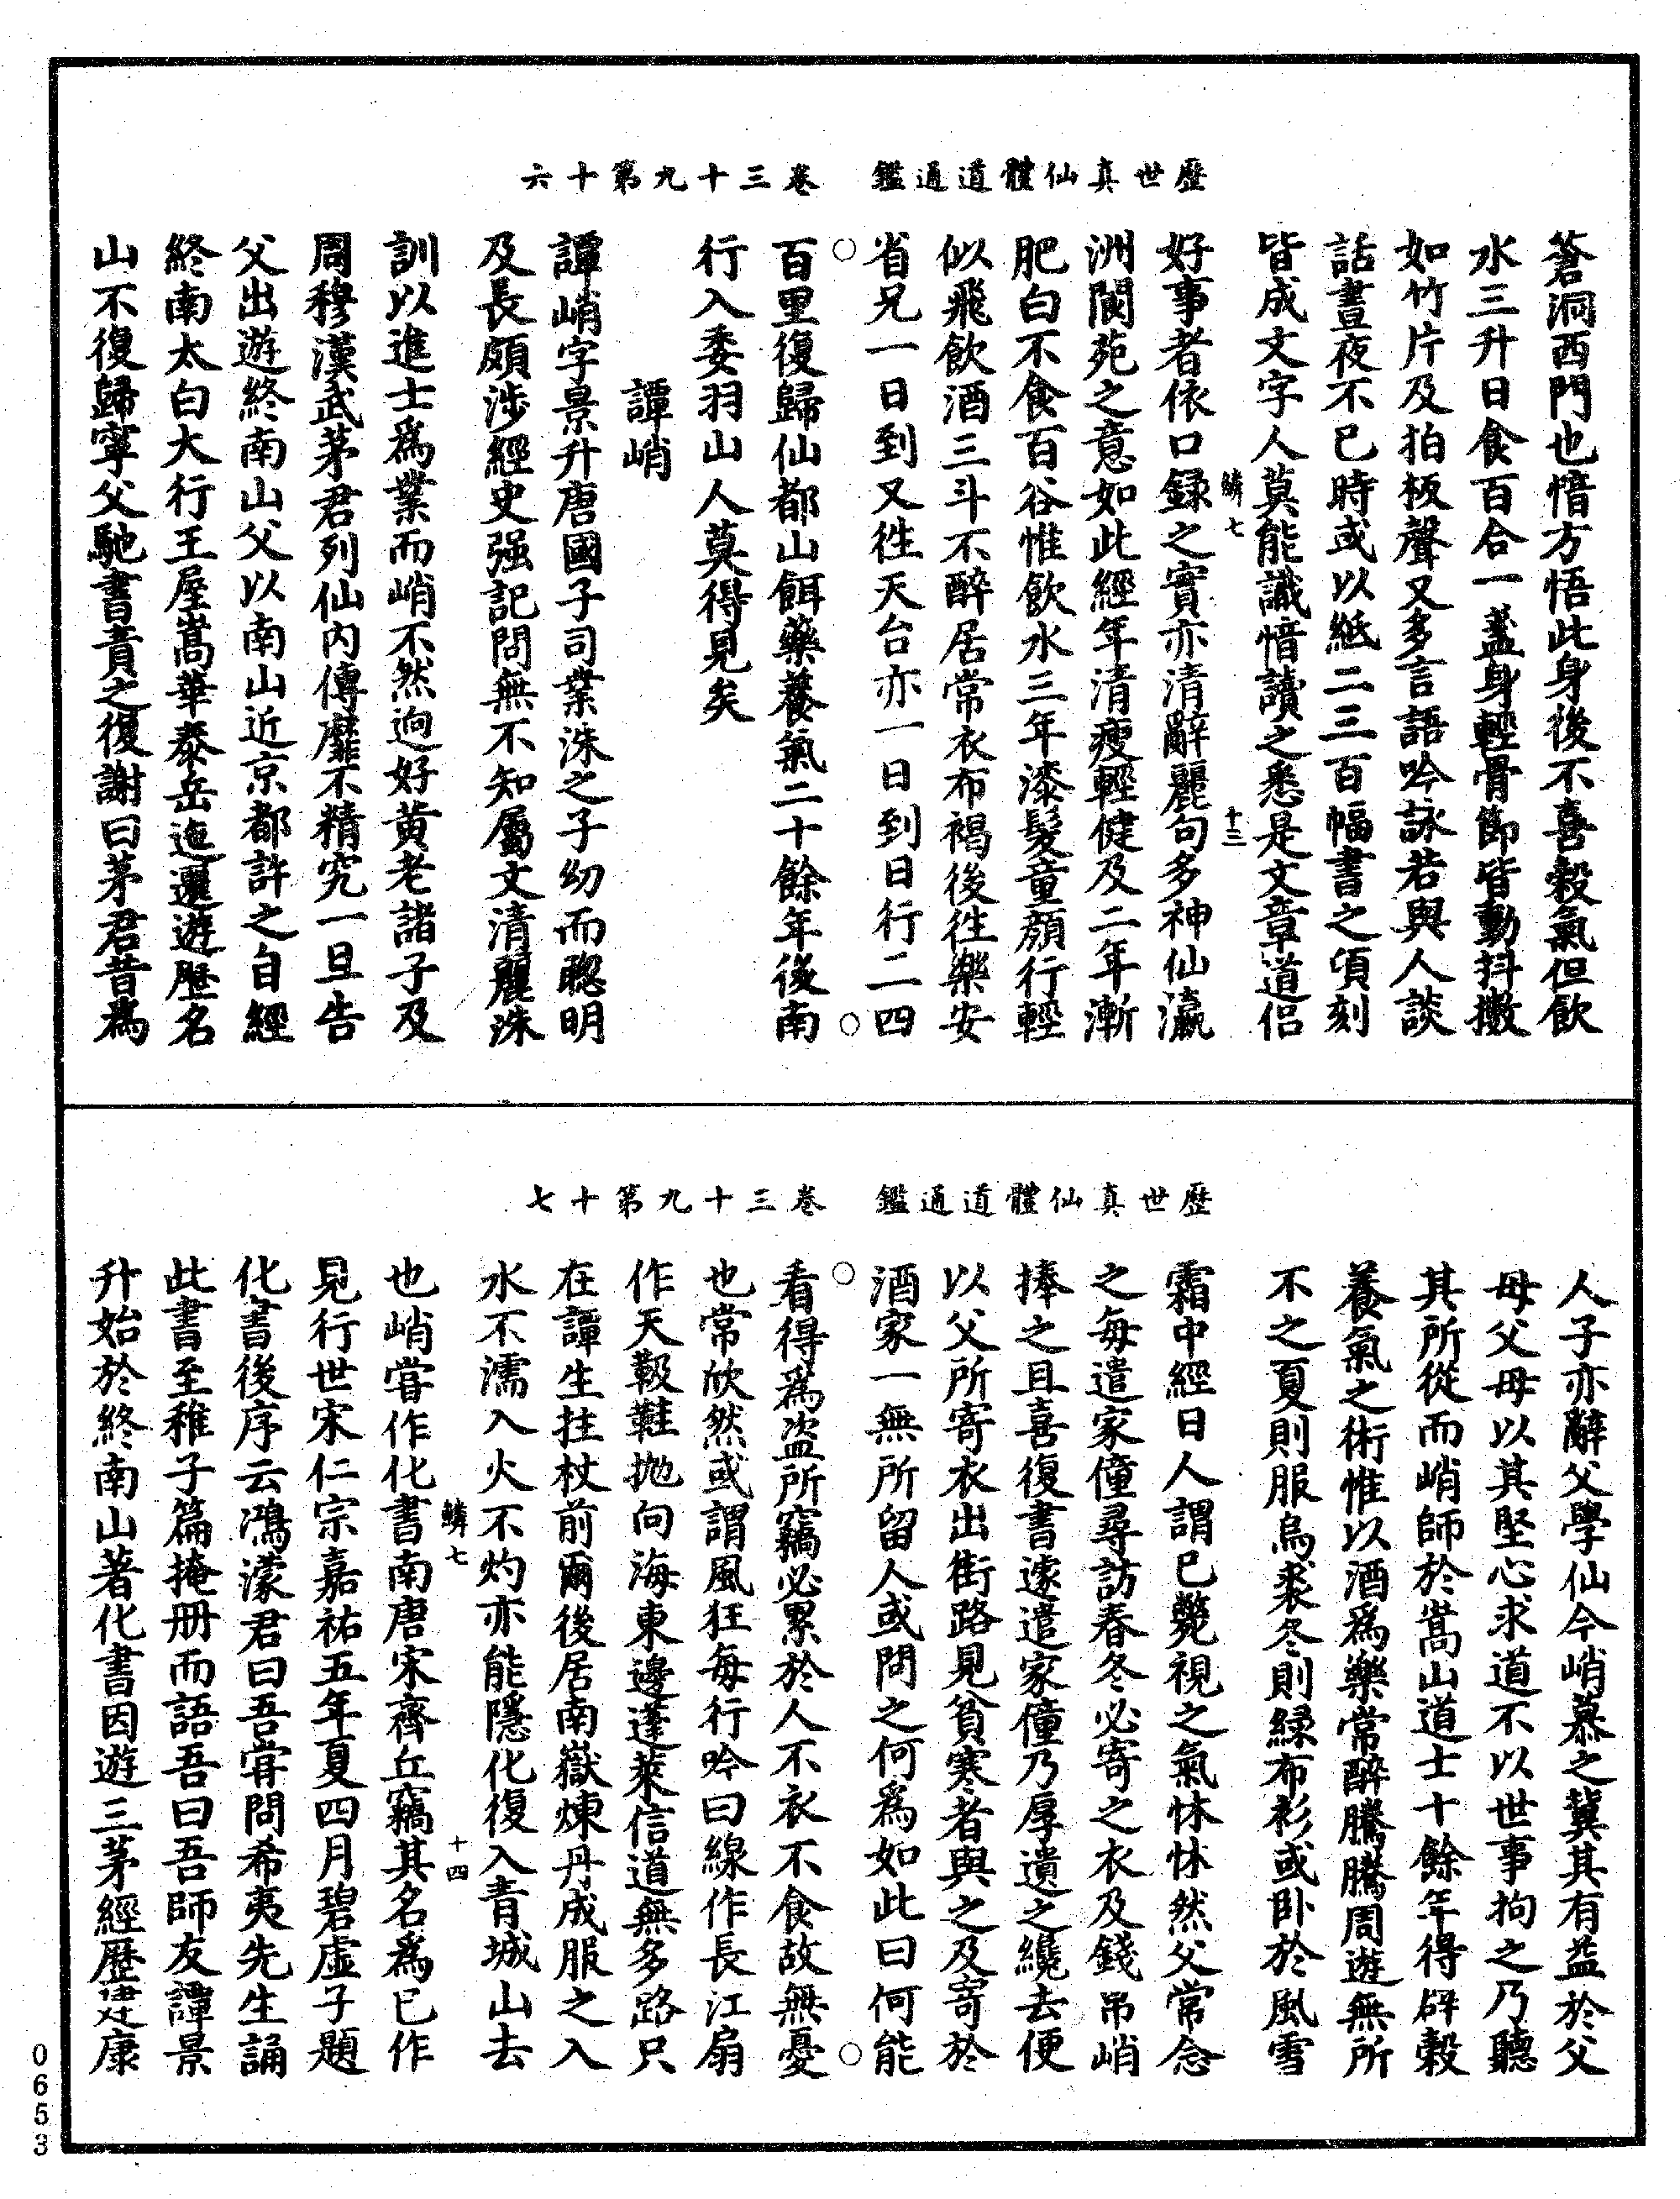 歷世真仙體道通鑑　卷三十九第十六
蒼洞西門也愔方悟此身後不喜榖氣但飲
水三升日食百合一盞身輕骨節皆動抖擻
如竹片及拍板聲又多言語吟詠若與人談
話晝夜不已時或以紙二三百幅書之頃刻
皆成文字人莫能識愔讀之悉是文章道侣
鱗七　十三
好事者依口録之實亦清辭麗句多神仙瀛
洲閬苑之意如此經年清瘦輕健及二年漸
肥白不食百谷惟飲水三年漆髮童顏行輕
似飛飲酒三斗不醉居常衣布褐後往樂安
省兄一日到又往天台亦一日到日行二四
百里復歸仙都山餌藥養氣二十餘年後南
行入委羽山人莫得見矣
譚峭
譚峭字景升唐國子司業洙之子幼而聰明
及長頗涉經史强記問無不知屬文清麗洙
訓以進士為業而峭不然迥好黄老諸子及
周穆漢武茅君列仙内傳靡不精究一旦告
父出遊終南山父以南山近京都許之自經
終南太白大行王屋嵩華泰岳迤邐遊歷名
山不復歸寧父馳書責之復謝曰茅君昔為
歷世真仙體道通鑑　卷三十九第十七
人子亦辭父學仙今峭慕之冀其有益於父
母父母以其堅心求道不以世事拘之乃聽
其所從而峭師於嵩山道士十餘年得辟榖
養氣之術惟以酒為樂常醉騰騰周遊無所
不之夏則服烏裘冬則緑布衫或卧於風雪
霜中經日人謂已斃視之氣怵怵然父常念
之每遣家僮尋訪春冬必寄之衣及錢帛峭
捧之且喜復書遽遣家僮乃厚遺之纔去便
以父所寄衣出街路見貧寒者與之及寄於
酒家一無所留人或問之何為如此曰何能
看得為盗所竊必累於人不衣不食故無憂
也常欣然或謂風狂每行吟曰線作長江扇
作天靸鞋抛向海東邊蓬萊信道無多路只
在譚生拄杖前爾後居南嶽煉丹成服之入
水不濡入火不灼亦能隱化復入青城山去
鱗七　十四
也峭嘗作化書南唐宋齊丘竊其名為已作
見行世宋仁宗嘉祐五年夏四月碧虛子題
化書後序云鴻濛君曰吾嘗問希夷先生誦
此書至稚子篇掩册而語吾曰吾師友譚景
升始於終南山著化書因遊三茅經歷建康
0653